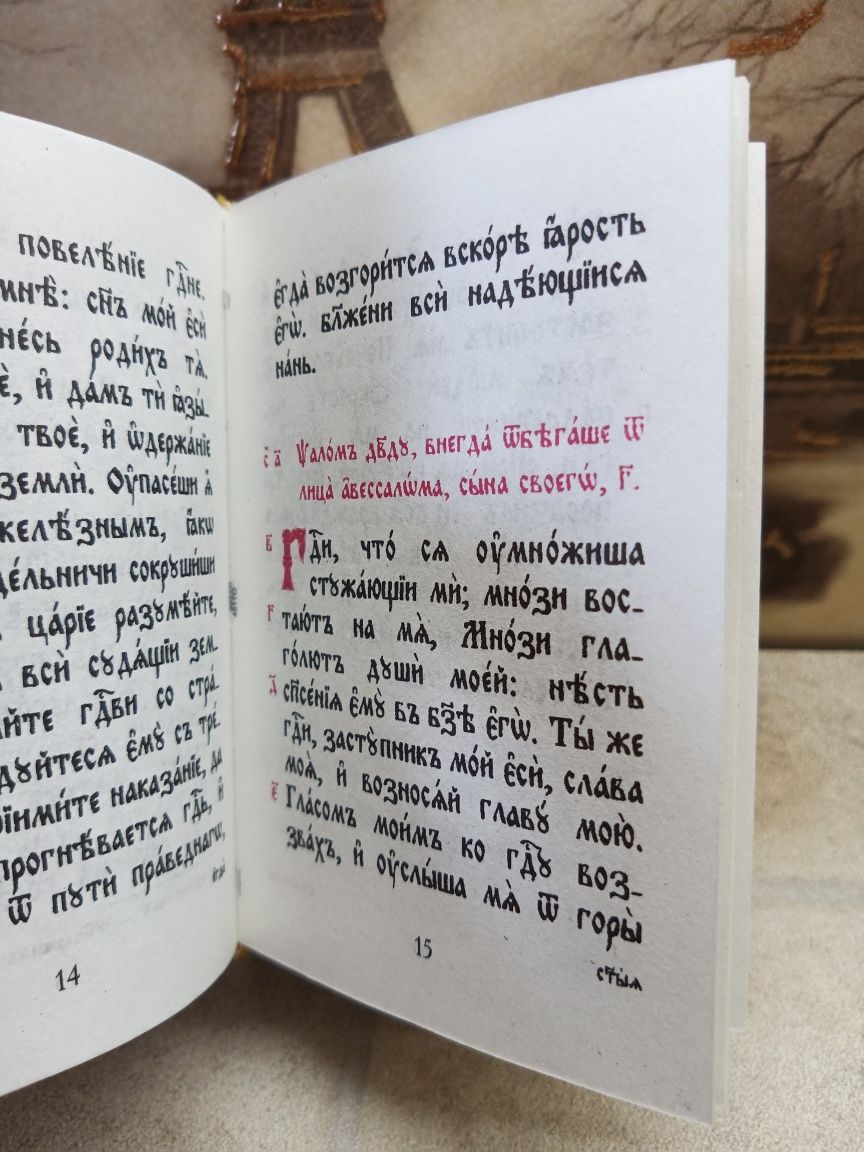 повелѣ́нїе гдⷭ҇не.
мнѣ̀: сн҃ъ мо́й є҆сѝ
роди́хъ тѧ̀.
и҆ да́мъ тѝ ꙗ҆зы́-
твоѐ, и҆ ѡ҆держа́нїе
землѝ. Оу҆пасе́ши ѧ҆̀
желѣ́знымъ, ꙗ҆́кѡ
сокрꙋши́ши
ца́рїе разꙋмѣ́йте,
всѝ сꙋдѧ́щїи зем-
гдⷭ҇ви со стра́-
є҆мꙋ̀ съ тре́-
наказа́нїе, да
прогнѣ́вается гдⷭ҇ь, и҆
ѿ пꙋтѝ пра́веднагѡ,
є҆гда̀
14
є҆гда̀ возгори́тсѧ вско́рѣ ꙗ҆́рость
є҆гѡ̀. бл҃же́ни всѝ надѣ́ющїисѧ
на́нь.
с҃ а҃ Ѱало́мъ дв҃дꙋ, внегда̀ ѿбѣга́ше ѿ
лица̀ а҆вессалѡ́ма, сы́на своегѡ̀, г҃.
в҃ Гдⷭ҇и, что́ сѧ оу҆мно́жиша
стꙋжа́ющїи мѝ; мно́зи вос-
г҃ таю́тъ на мѧ̀, Мно́зи гла-
го́лютъ дꙋшѝ мое́й: нѣ́сть
д҃ спⷭ҇е́нїѧ є҆мꙋ̀ въ бз҃ѣ є҆гѡ̀. Ты́ же
гдⷭ҇и, застꙋ́пникъ мо́й є҆сѝ, сла́ва
моѧ̀, и҆ возносѧ́й главꙋ̀ мою̀.
є҃ Гла́сомъ мои́мъ ко гдⷭ҇ꙋ воз-
зва́хъ, и҆ оу҆слы́ша мѧ̀ ѿ горы̀
ст҃ы́ѧ
15